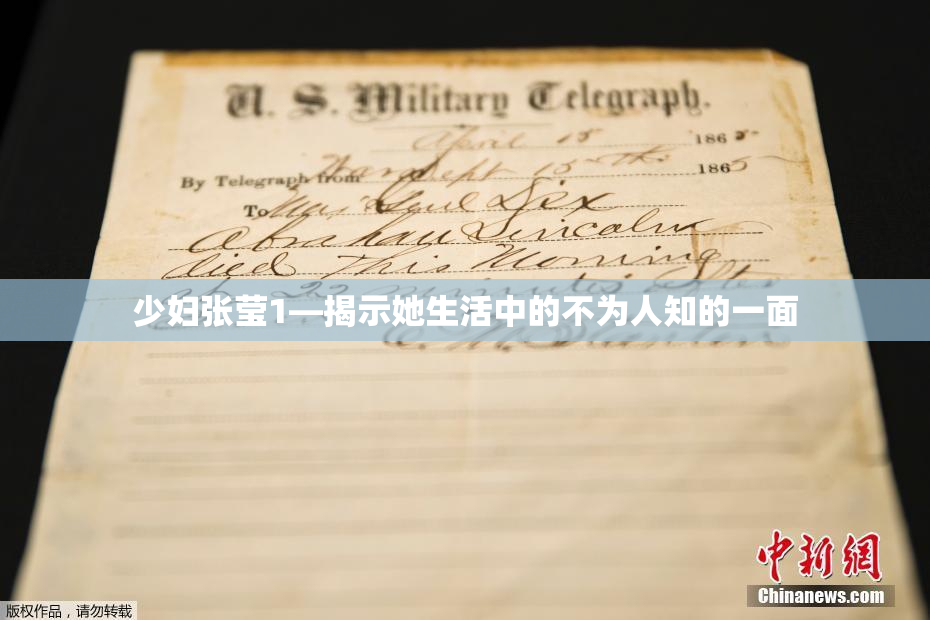 U. S. Military Telegraph.
April 15 1865
By Telegraph from War Dept 15th 1865
To Maj Genl Dix
Abraham Lincoln
died This Morning
at 22 minutes after
少妇张莹1—揭示她生活中的不为人知的一面
E. M. Stanton
中新网
Chinanews.com
版权作品，请勿转载